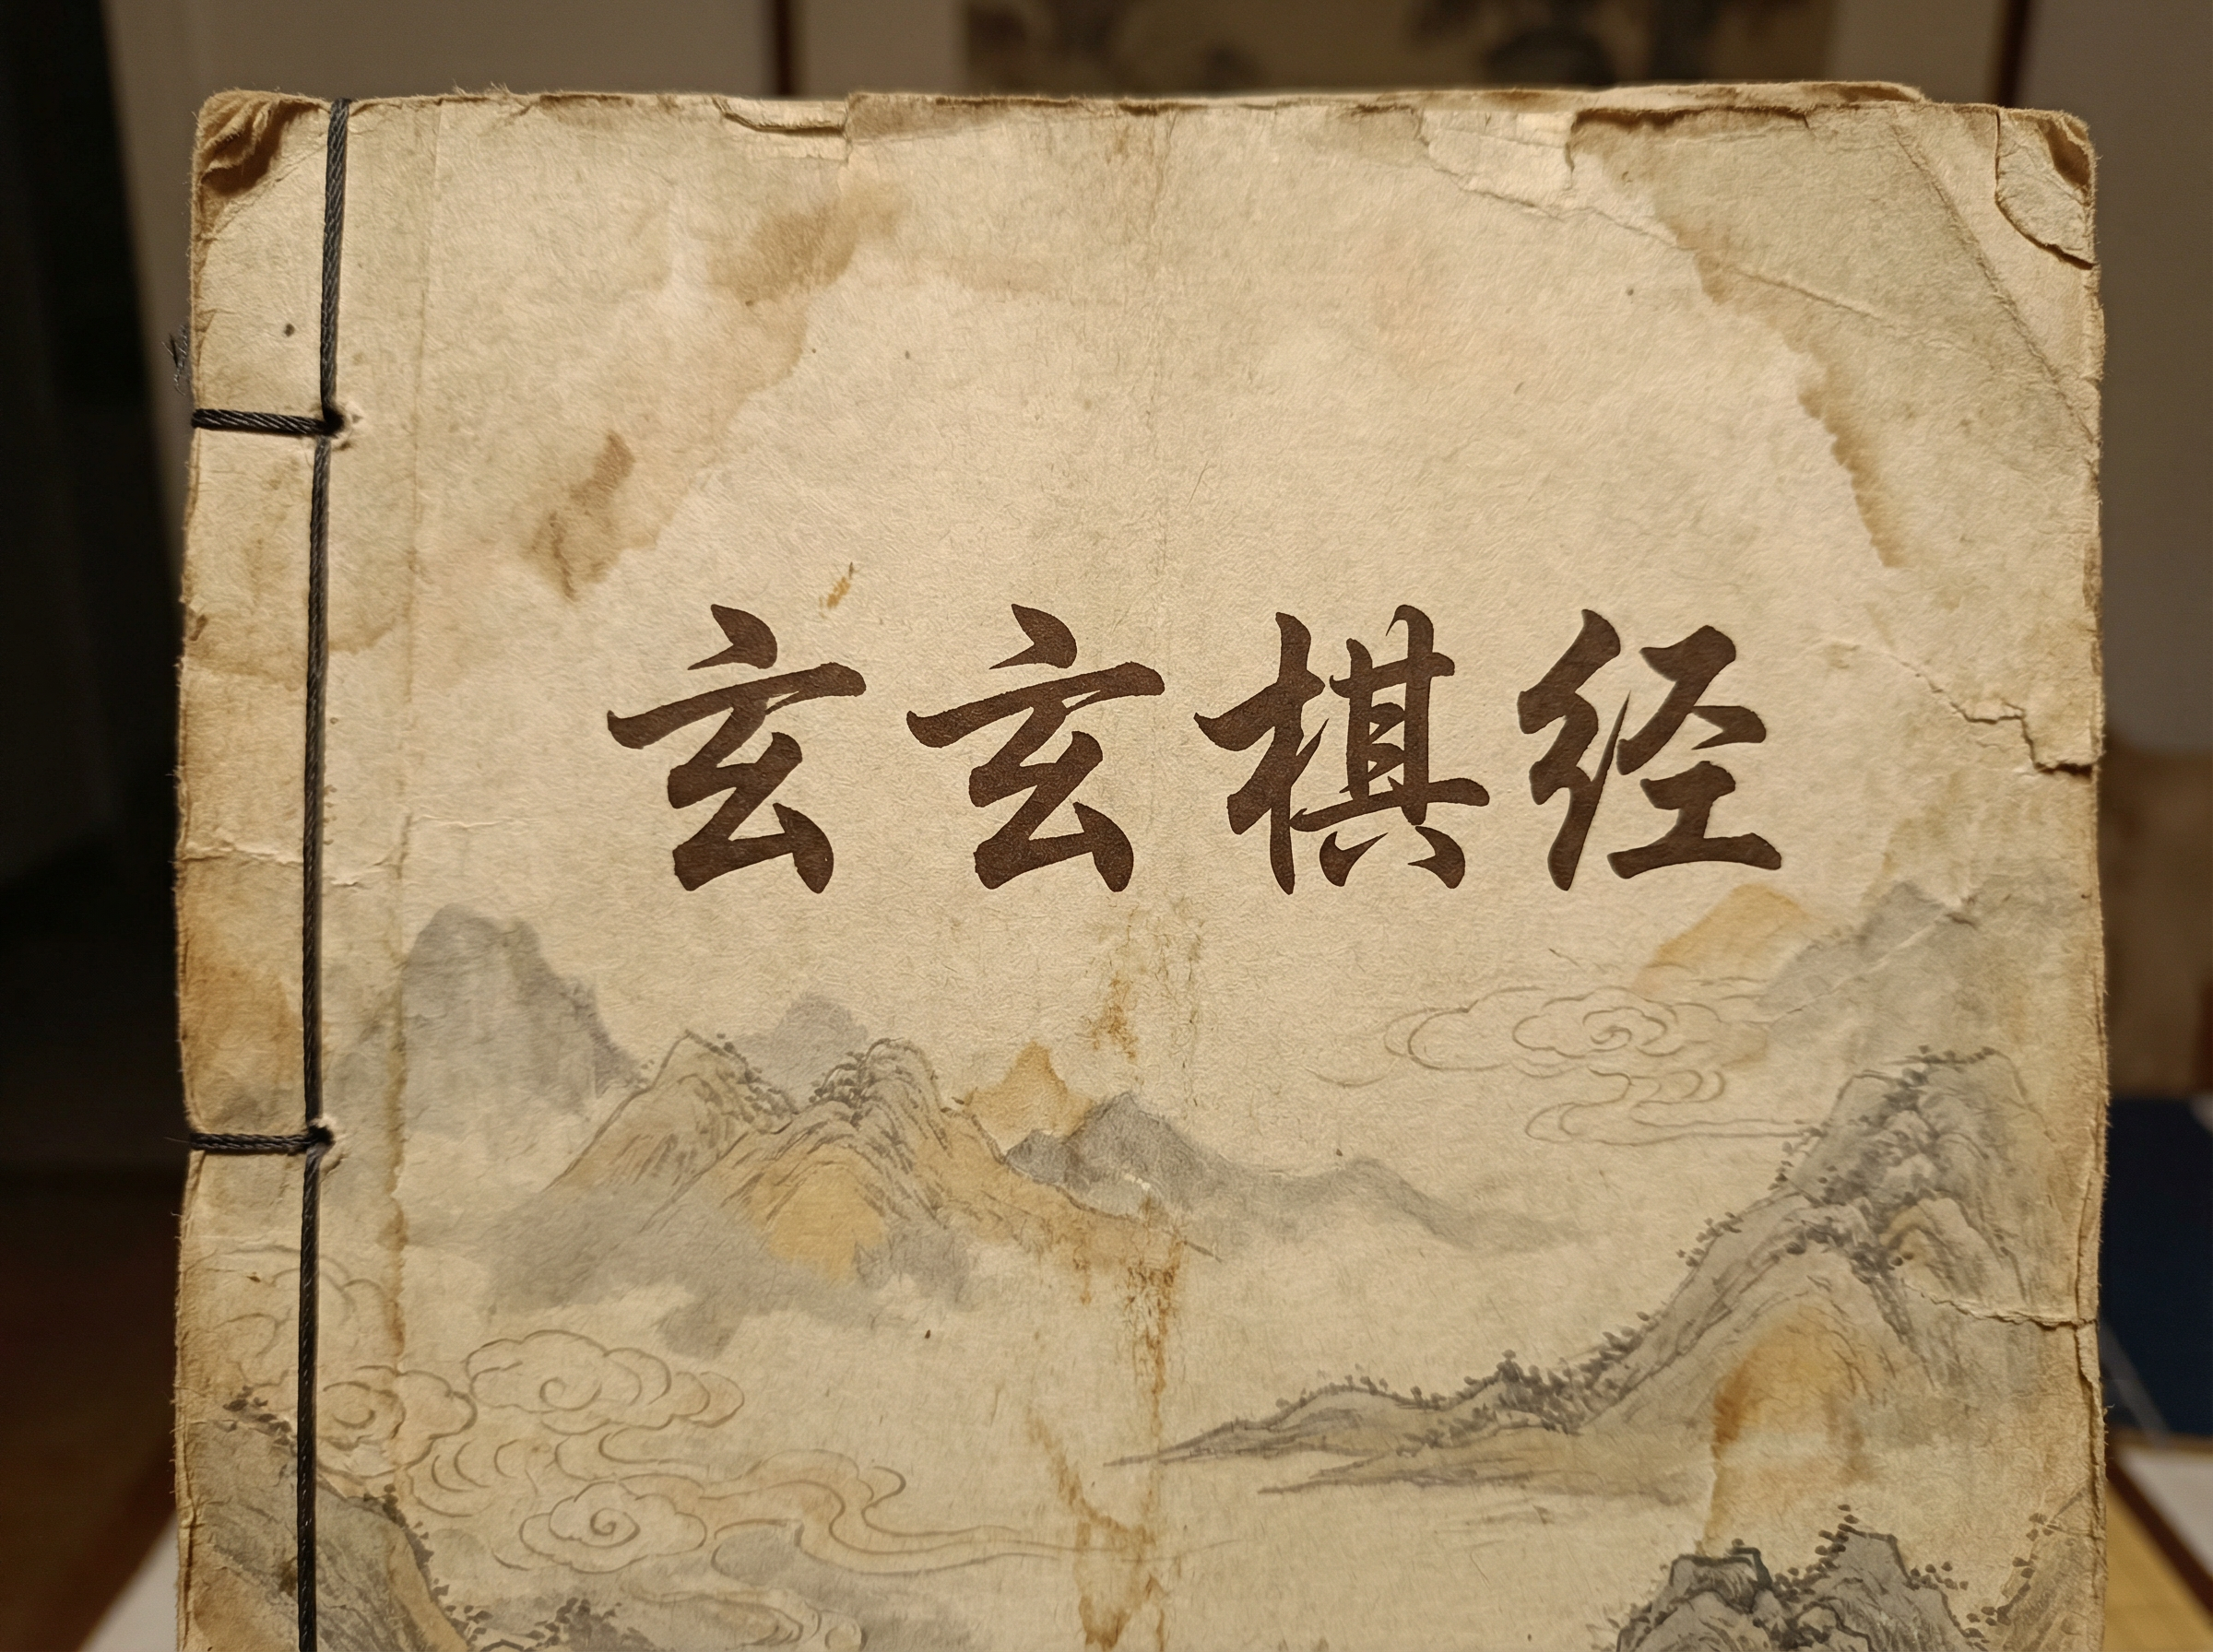 玄玄棋经